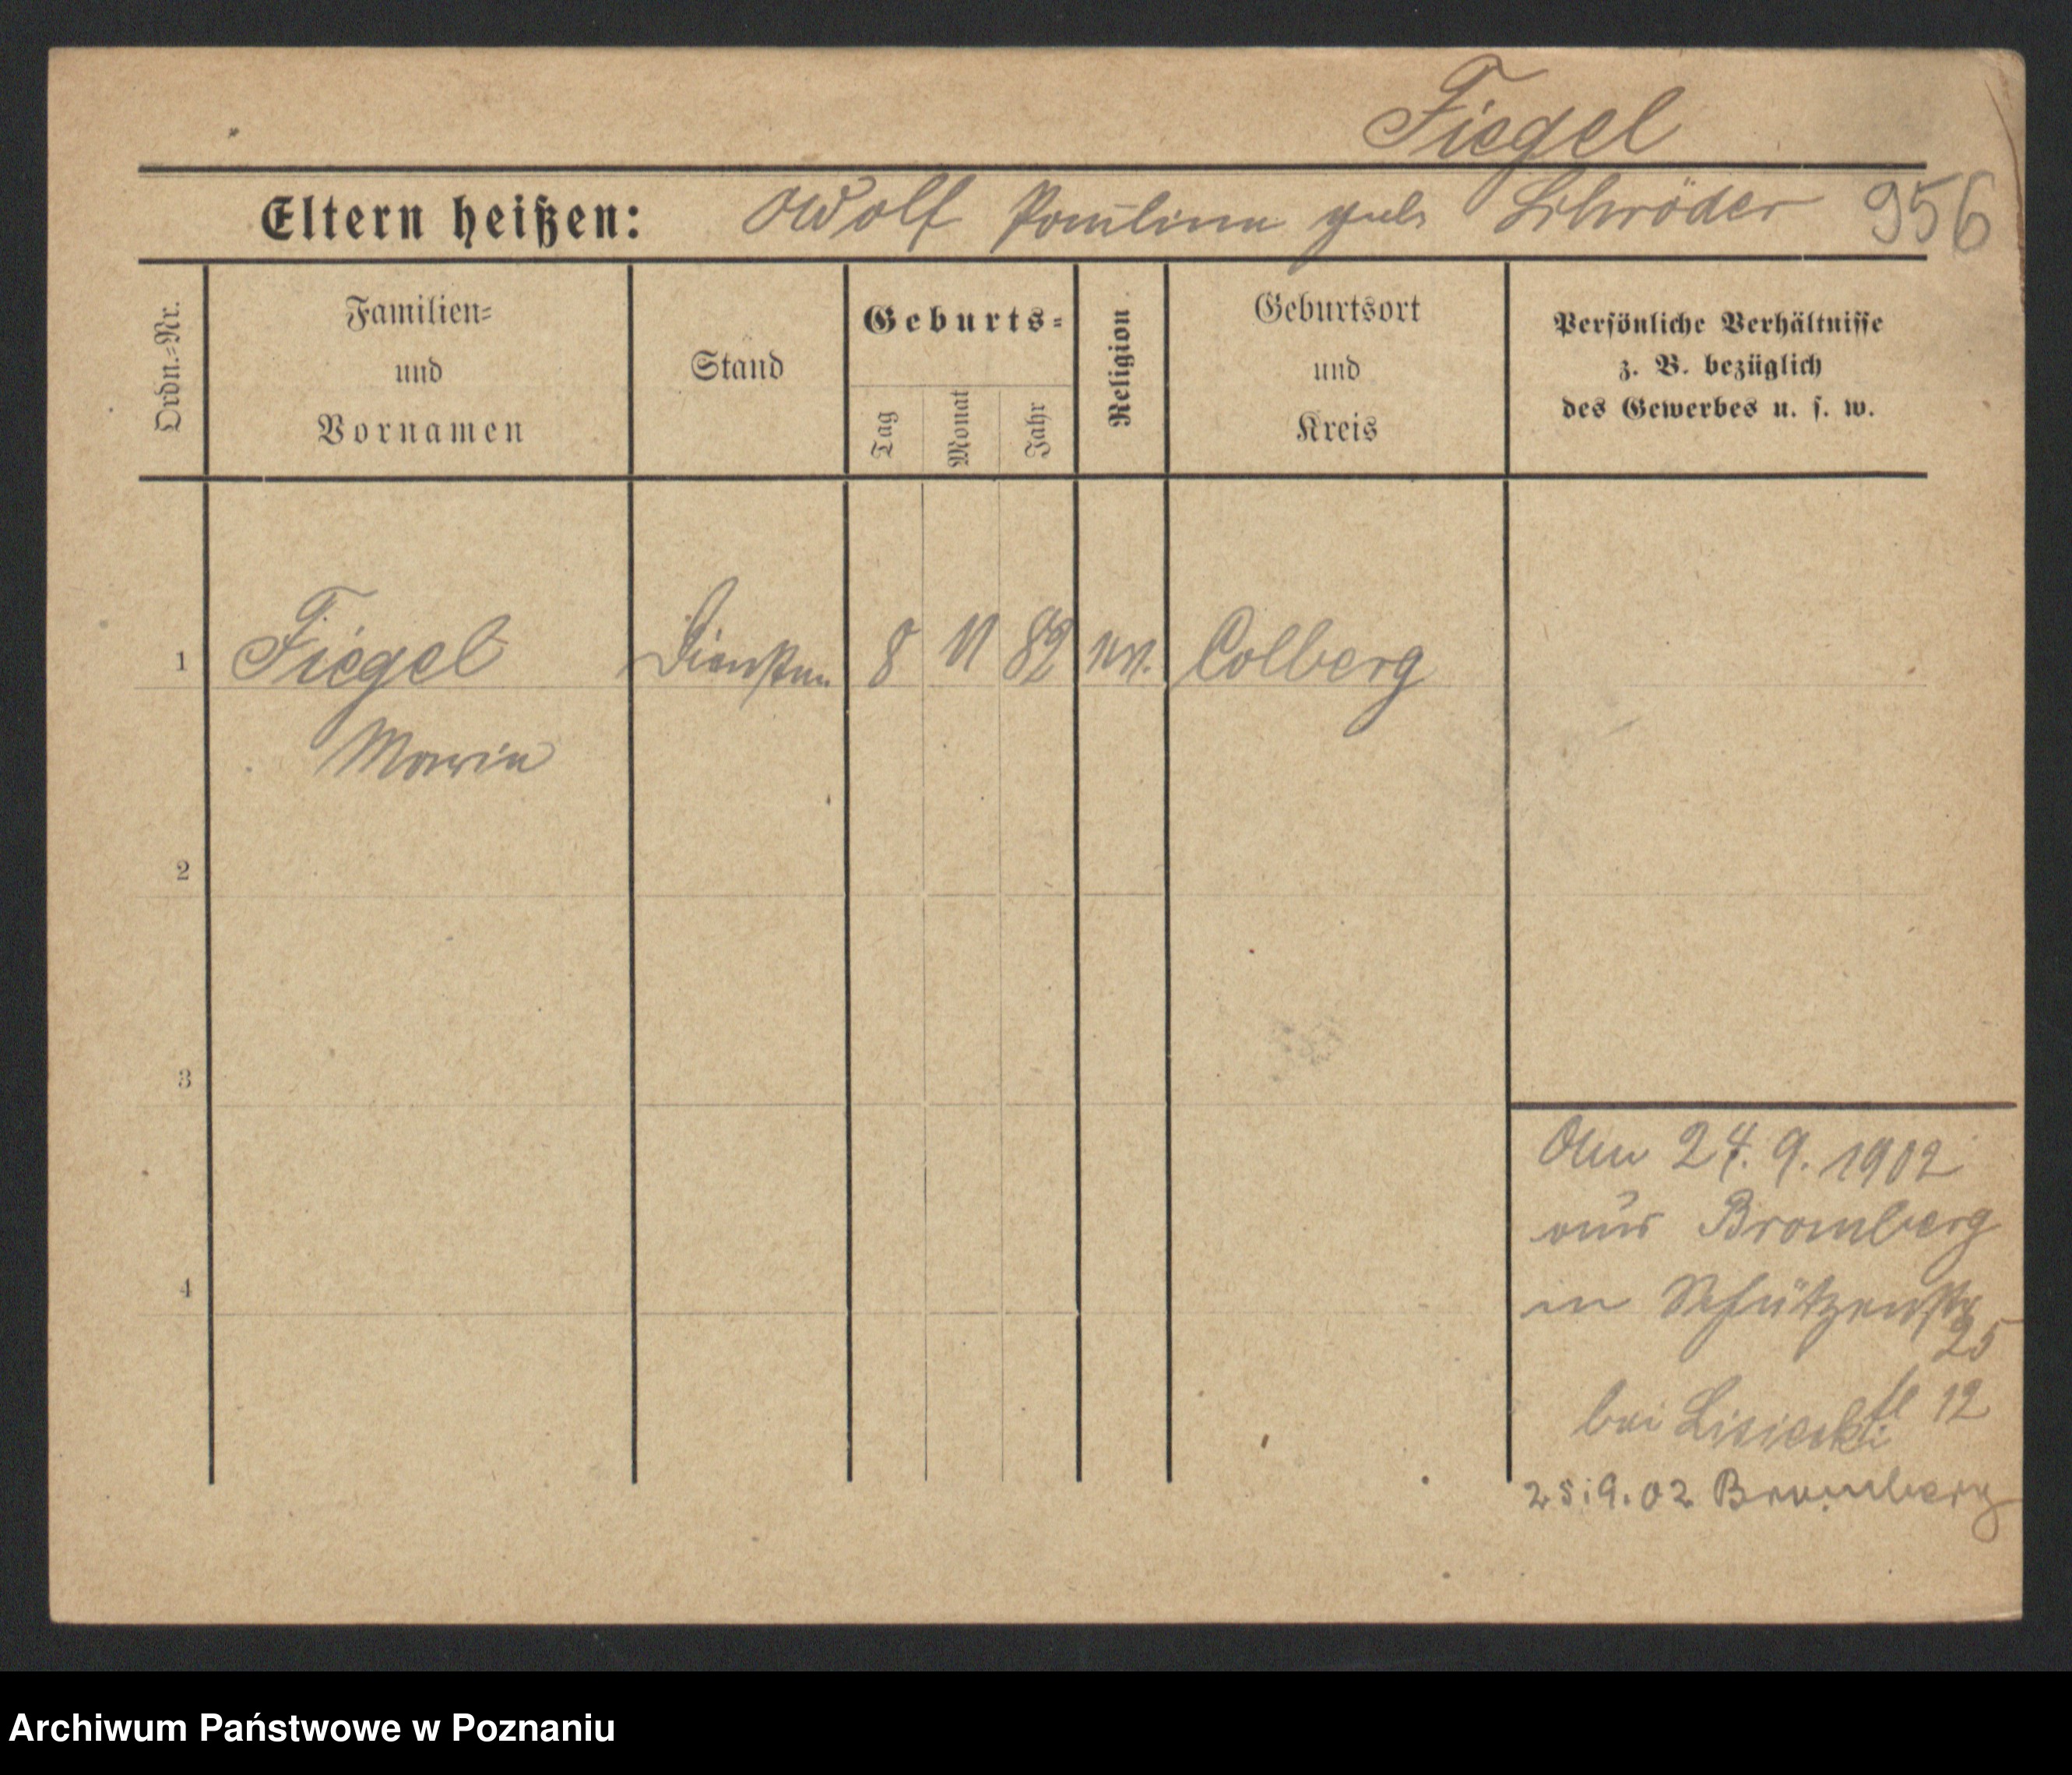 Fiegel
Eltern heißen: Adolf Paulina geb Schröder 956
Ordn.-Nr.
Familien-
und
Vornamen
Stand
Geburts-
Tag
Monat
Jahr
Religion
Geburtsort
und
Kreis
Persönliche Verhältnisse
z. B. bezüglich
des Gewerbes u. s. w.
1 Fiegel 8 11 82 ev. Colberg
Marie
2
3
4
Am 24. 9. 1902
aus Bromberg
in Schützenstr
25
bei Lisiecki 12
25.9.02 Bromberg
Archiwum Państwowe w Poznaniu